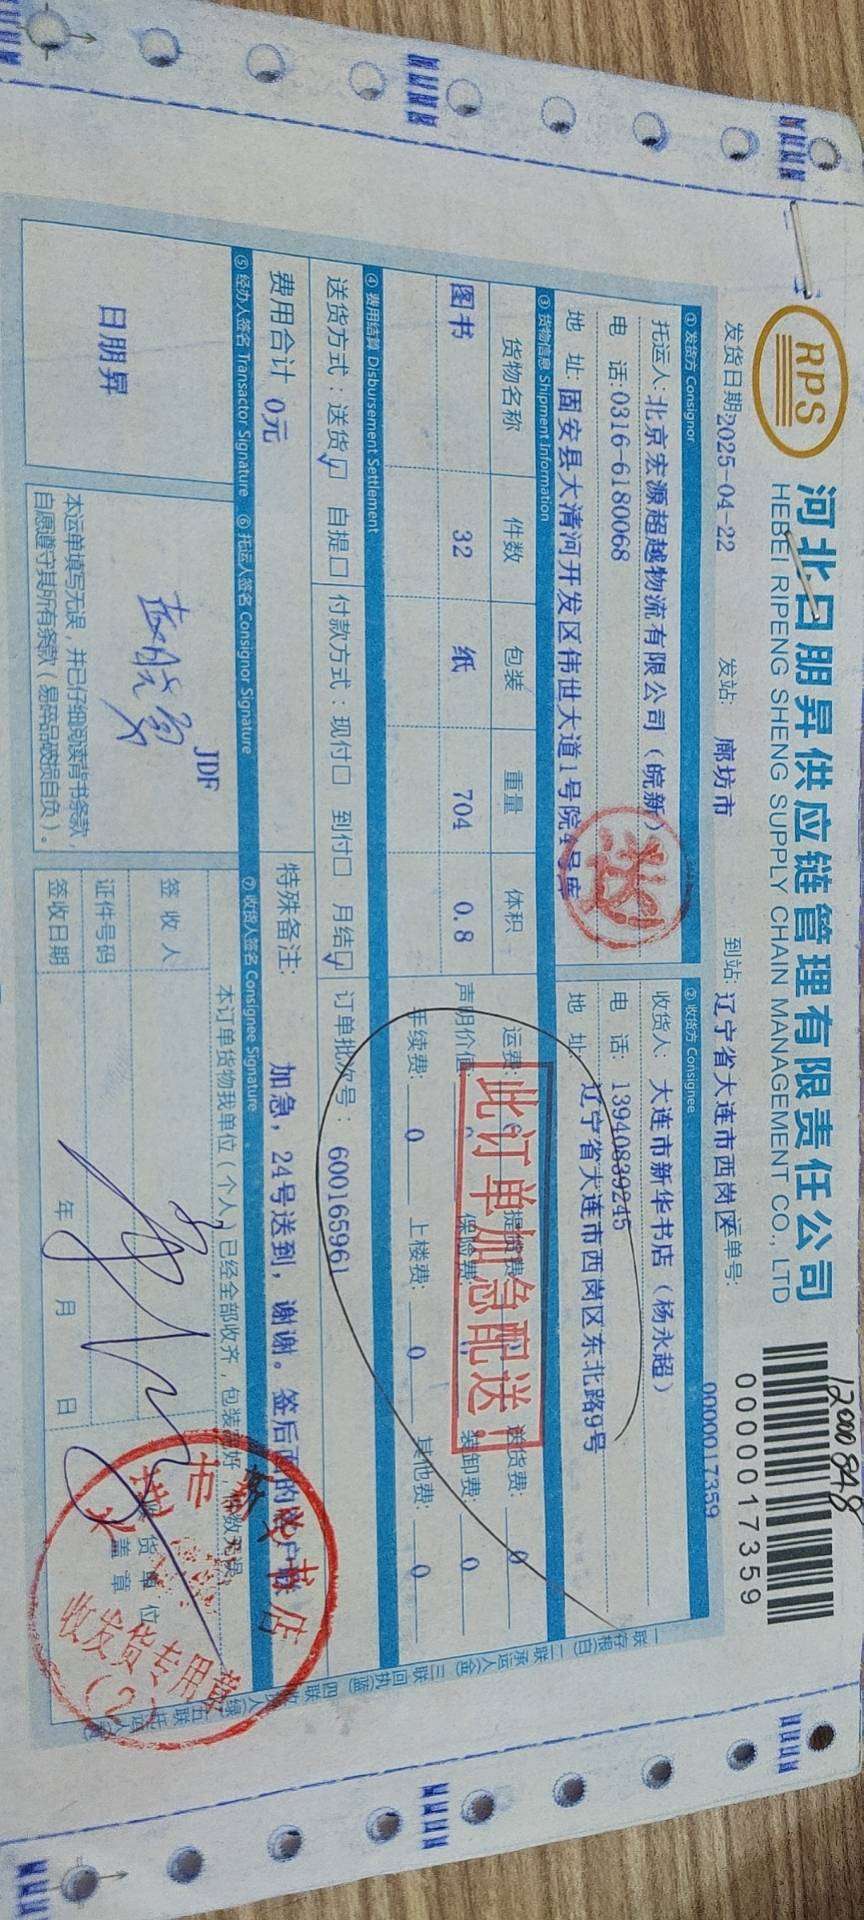 RPS
河北日朋昇供应链管理有限责任公司
HEBEI RIPENG SHENG SUPPLY CHAIN MANAGEMENT CO., LTD
1200084.8
0000017359
发货日期:2025-04-22 发站: 廊坊市 到站: 辽宁省大连市西岗区 运单号: 0000017359
①发货方 Consignor ②收货方 Consignee
托运人: 北京宏源超越物流有限公司（皖新） 收货人: 大连市新华书店（杨永超）
电 话:0316-6180068 电 话: 13940839245
地 址: 固安县大清河开发区伟世大道1号院4号库 地 址: 辽宁省大连市西岗区东北路9号
③货物信息 Shipment Information
货物名称 件数 包装 重量 体积 运费: 提货费: 送货费: 0
图书 32 纸 704 0.8 声明价值: 保险费: 装卸费: 0
手续费: 0 上楼费: 0 其他费: 0
此订单加急配送
④费用结算 Disbursement Settlement
送货方式：送货☑ 自提□ 付款方式：现付□ 到付□ 月结☑ 订单批次号： 600165961
费用合计 0元 特殊备注: 加急，24号送到，谢谢。签后面的客户联
⑤经办人签名 Transactor Signature ⑥托运人签名 Consignor Signature ⑦收货人签名 Consignee Signature
日朋昇
JDF
本订单货物我单位（个人）已经全部收齐，包装完好，件数无误。
签 收 人
证件号码
签收日期 年 月 日
收货单位
盖章
本运单填写无误，并已仔细阅读背书条款，
自愿遵守其所有条款（易碎品破损自负）。
大连市新华书店
收发货专用章
（2）
一联存根(白) 二联承运人(红) 三联回执(蓝) 四联收货人(绿) 五联托运人(黄)